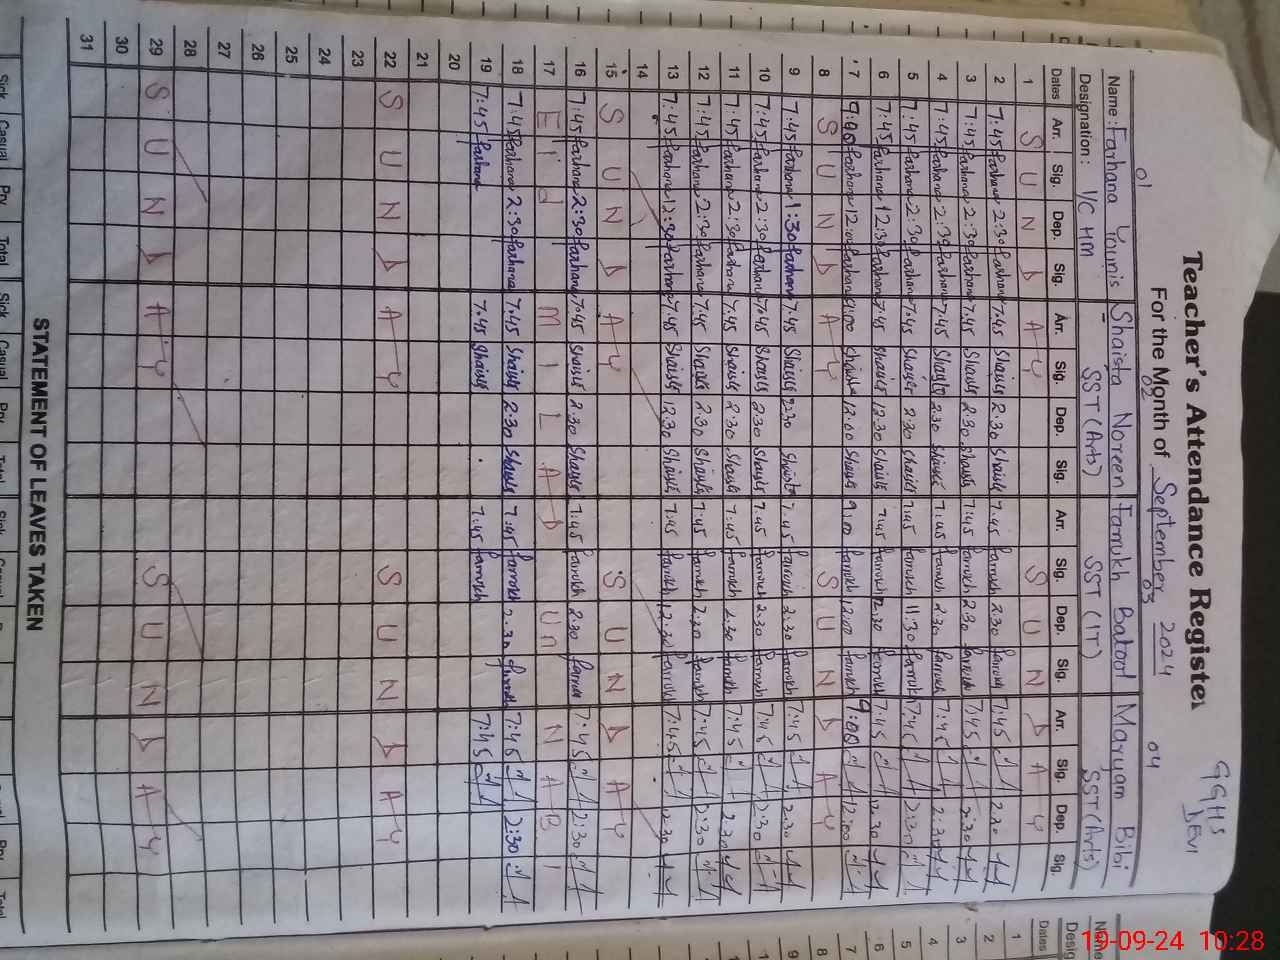 GGHS
DEVI
Teacher's Attendance Register
For the Month of September 2024
01 02 03 04
Name: Farhana Younis Shaista Noreen Farrukh Batool Maryam Bibi
Designation: I/C HM SST (Arts) SST (IT) SST (Arts)
Dates Arr. Sig. Dep. Sig. Arr. Sig. Dep. Sig. Arr. Sig. Dep. Sig. Arr. Sig. Dep. Sig.
1 S U N D A Y S U N D A Y
2 7:45 Farhana 2:30 Farhana 7.45 Shaista 2.30 Shaista 7.45 Farrukh 2.30 Farrukh 7:45 2.30
3 7:45 Farhana 2:30 Farhana 7.45 Shaista 2.30 Shaista 7:45 Farrukh 2.30 Farrukh 7:45 2.30
4 7:45 Farhana 2:30 Farhana 7.45 Shaista 2.30 Shaista 7:45 Farrukh 2.30 Farrukh 7:45 2:30
5 7:45 Farhana 2:30 Farhana 7.45 Shaista 2.30 Shaista 7.45 Farrukh 11.30 Farrukh 7:45 2:30
6 7:45 Farhana 12:30 Farhana 7.45 Shaista 12.30 Shaista 7.45 Farrukh 12.30 Farrukh 7:45 12.30
7 9:00 Farhana 12:00 Farhana 9:00 Shaista 12.00 Shaista 9.00 Farrukh 12.00 Farrukh 9:00 12:00
8 S U N D A Y S U N D A Y
9 7:45 Farhana 1:30 Farhana 7.45 Shaista 2.30 Shaista 7.45 Farrukh 2.30 Farrukh 7:45 2.30
10 7:45 Farhana 2:30 Farhana 7.45 Shaista 2.30 Shaista 7.45 Farrukh 2.30 Farrukh 7:45 2:30
11 7:45 Farhana 2:30 Farhana 7.45 Shaista 2.30 Shaista 7.45 Farrukh 2.30 Farrukh 7:45 2.30
12 7:45 Farhana 2:30 Farhana 7.45 Shaista 2.30 Shaista 7.45 Farrukh 2.30 Farrukh 7:45 2:30
13 7:45 Farhana 12:30 Farhana 7.45 Shaista 12.30 Shaista 7.45 Farrukh 12.30 Farrukh 7:45 12.30
14
15 S U N D A Y S U N D A Y
16 7:45 Farhana 2:30 Farhana 7.45 Shaista 2.30 Shaista 7.45 Farrukh 2.30 Farrukh 7:45 2:30
17 E i d M I L A D U n N A B I
18 7:45 Farhana 2:30 Farhana 7.45 Shaista 2.30 Shaista 7.45 Farrukh 2.30 Farrukh 7:45 2:30
19 7:45 Farhana 7.45 Shaista 7:45 Farrukh 7:45
20
21
22 S U N D A Y S U N D A Y
23
24
25
26
27
28
29 S U N D A Y S U N D A Y
30
31
STATEMENT OF LEAVES TAKEN
Sick Casual Prv Total Sick Casual Prv Total Sick Casual Total
Name
Desig
Dates
1
2
3
4
5
6
7
8
9
19-09-24 10:28